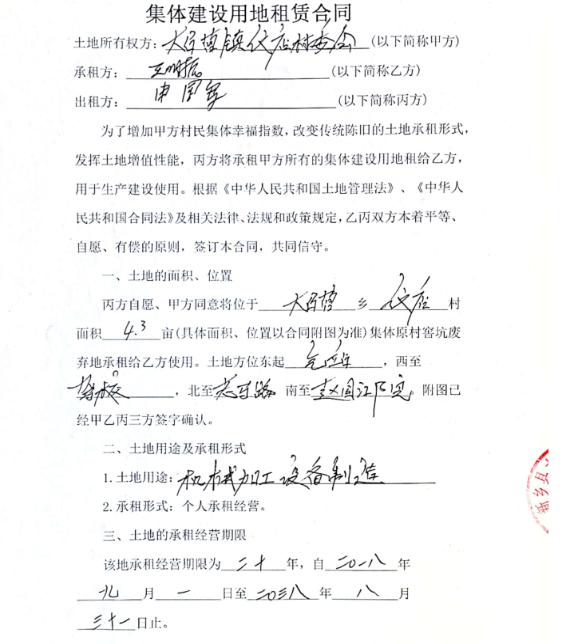 集体建设用地租赁合同
土地所有权方：大召营镇代店村委会（以下简称甲方）
承租方：（以下简称乙方）
出租方：申国军（以下简称丙方）
为了增加甲方村民集体幸福指数，改变传统陈旧的土地承租形式，
发挥土地增值性能，丙方将承租甲方所有的集体建设用地租给乙方，
用于生产建设使用。根据《中华人民共和国土地管理法》、《中华人
民共和国合同法》及相关法律、法规和政策规定，乙丙双方本着平等、
自愿、有偿的原则，签订本合同，共同信守。
一、土地的面积、位置
丙方自愿、甲方同意将位于 大召营 乡 代店 村
面积 4.3 亩（具体面积、位置以合同附图为准）集体原村窑坑废
弃地承租给乙方使用。土地方位东起，西至
，北至 南至 附图已
经甲乙丙三方签字确认。
二、土地用途及承租形式
1.土地用途：机械加工设备制造
2.承租形式：个人承租经营。
三、土地的承租经营期限
该地承租经营期限为 二十 年，自 二〇一八 年
九 月 一 日至 二〇三八 年 八 月
三十一 日止。
新乡县